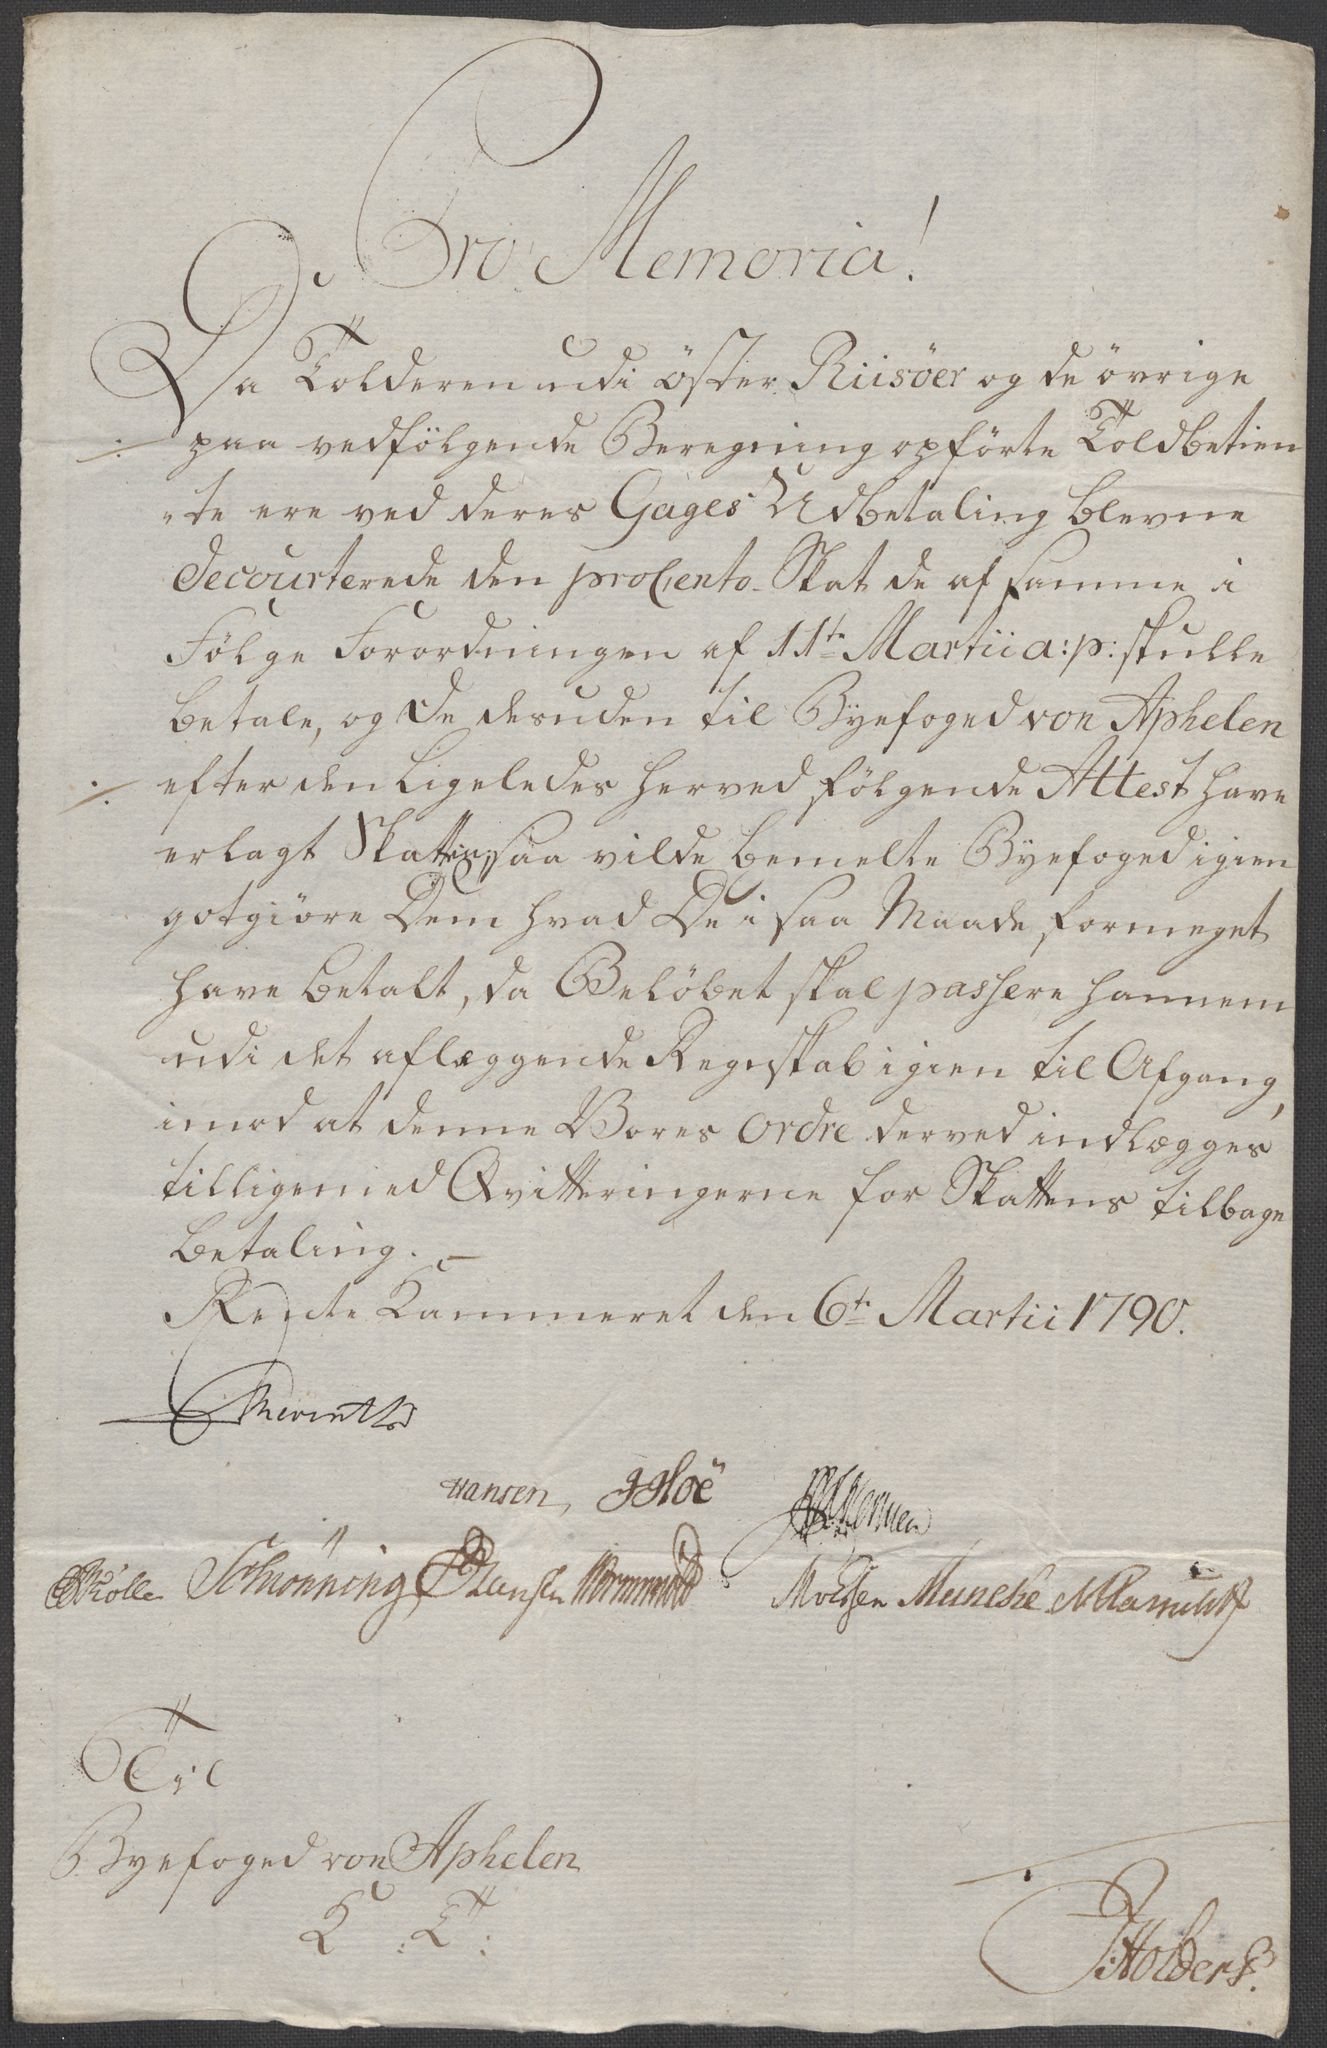 Pro Memoria!
Da Tolderen udi öster Riisöer og de övrige
paa vedfölgende Beregning opförte Toldbetien
"te ere ved deres Gages Udbetaling blevne
decourterede den proCento Skat de af samme i
Fölge Forordningen af 11te Martii a: p: skulle
betale, og de desuden til Byefoged von Aphelen
efter den Ligeledes herved fölgende Attest have
erlagt Skatten, saa vilde bemelte Byefoged igien
gotgiöre Dem hvad De i saa Maade formeget
have betalt, da Belöbet skal passere hannem
udi det aflæggende Regnskab igien til Afgang,
imod at denne Vores Ordre derved indlægges
tilligemed Qvitteringerne for Skattens tilbage
betaling.
Rente Kammeret den 6te Martii 1790.
Hansen, Hoë
Schiönning Hansen Moldsen Muncke
Til
Byefoged von Aphelen
K. T:
Holders.